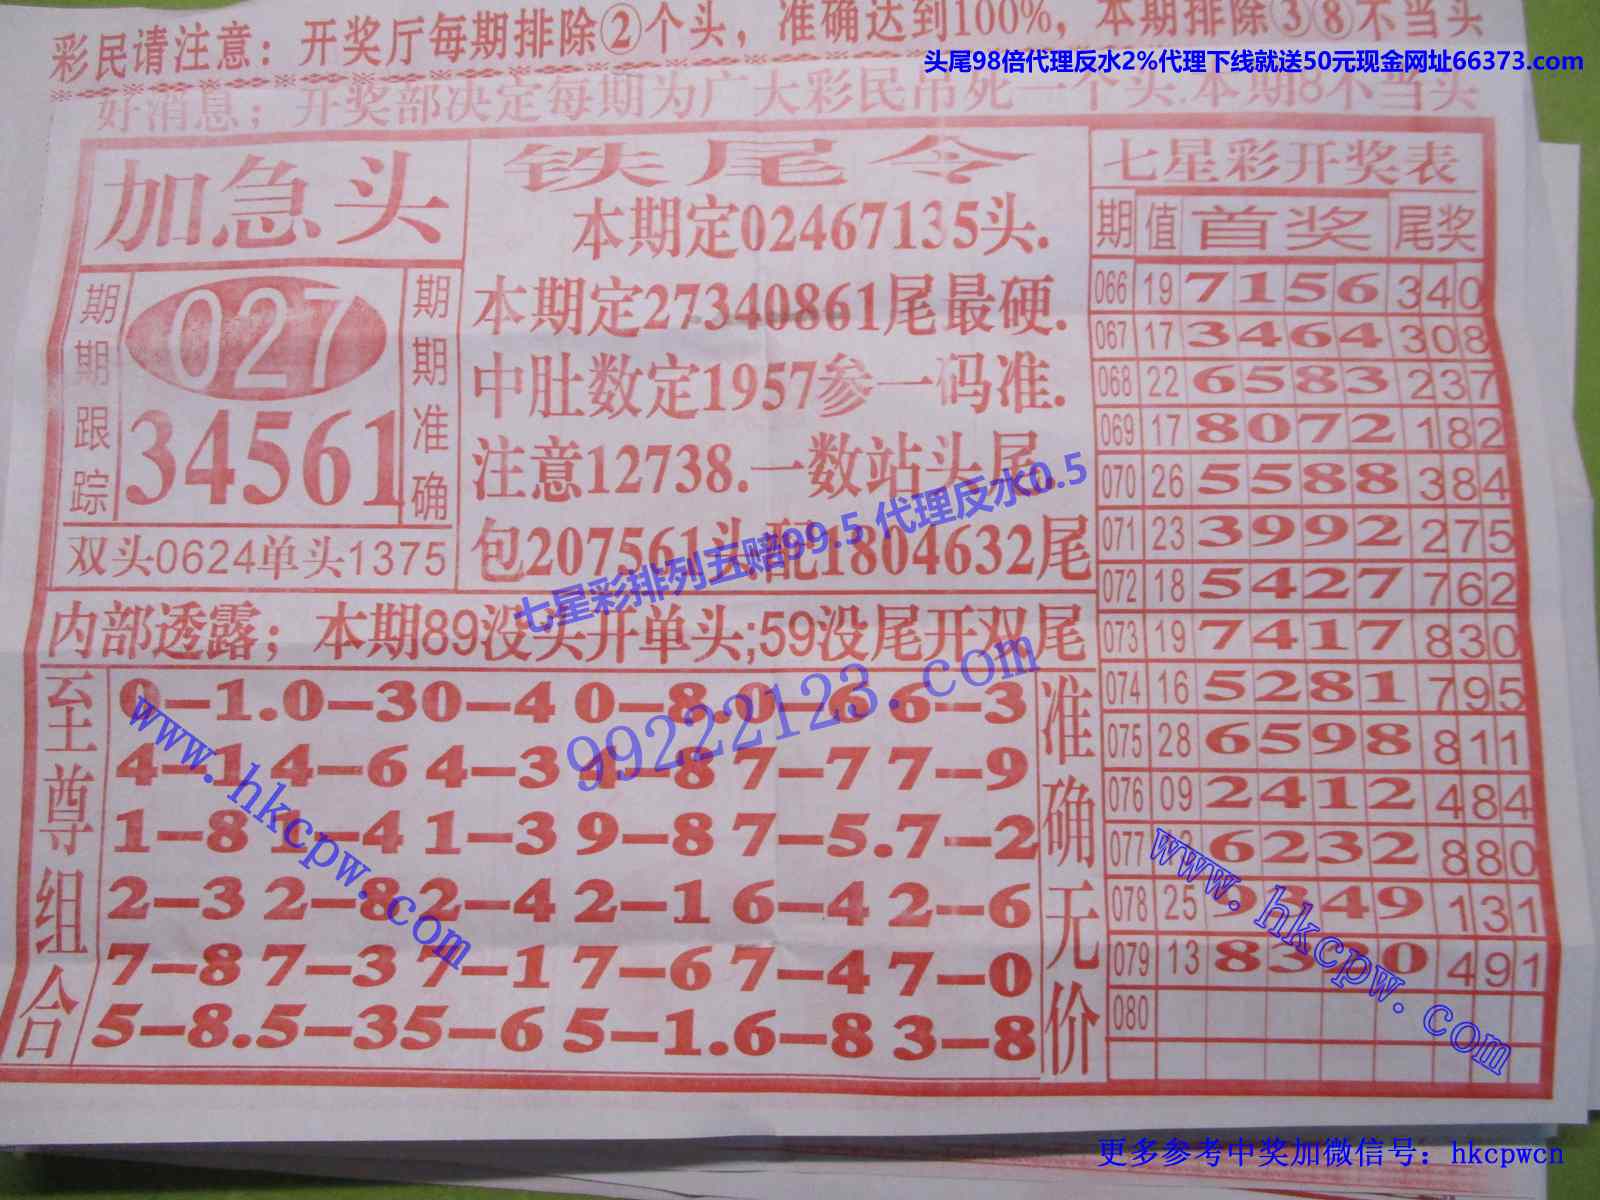 彩民请注意：开奖厅每期排除②个头，准确达到100%，本期排除③⑧不当头
头尾98倍代理反水2%代理下线就送50元现金网址66373.com
好消息；开奖部决定每期为广大彩民吊死一个头.本期8不当头
加急头
期期跟踪
027
34561
期期准确
双头0624单头1375
铁尾令
本期定02467135头.
本期定27340861尾最硬.
中肚数定1957参一码准.
注意12738.一数站头尾.
包207561头配1804632尾
七星彩排列五赔99.5 代理反水0.5
内部透露；本期89没头开单头;59没尾开双尾
99222123.com
至尊组合
0–1.0–30–4 0–8.0–6 6–3
4–1 4–6 4–3 4–8 7–7 7–9
1–8 1–4 1–3 9–8 7–5.7–2
2–3 2–8 2–4 2–1 6–4 2–6
7–8 7–3 7–1 7–6 7–4 7–0
5–8.5–35–6 5–1.6–8 3–8
准确无价
www.hkcpw.com
七星彩开奖表
期 值 首奖 尾奖
066 19 7156 340
067 17 3464 308
068 22 6583 237
069 17 8072 182
070 26 5588 384
071 23 3992 275
072 18 5427 762
073 19 7417 830
074 16 5281 795
075 28 6598 811
076 09 2412 484
077 6232 880
078 25 9349 131
079 13 8320 491
080
www.hkcpw.com
更多参考中奖加微信号：hkcpwcn